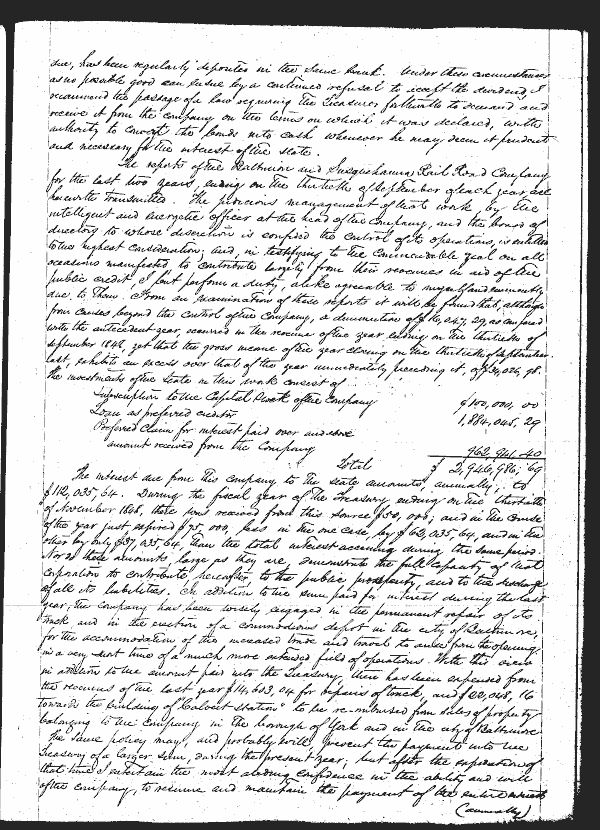 due, has been regularly deposited in the same bank. Under these circumstances
as no possible good can ensue by a continued refusal to accept the dividend, I
recommend the passage of a law requiring the Treasurer forthwith to demand and
receive it from the company on the terms on which it was declared, with
authority to convert the bonds into cash whenever he may deem it prudent
and necessary for the interest of the state.
The reports of the Baltimore and Susquehanna Rail Road Company
for the last two years, ending on the thirtieth of September of each year, are
herewith transmitted. The judicious management of that work, by the
intelligent and energetic officer at the head of the Company, and the board of
directors to whose discretion is confided the control of its operations, is entitled
to the highest consideration; and, in testifying to the commendable zeal on all
occasions manifested to contribute largely from their revenues in aid of the
public credit, I but perform a duty, alike agreeable to myself and eminently
due to them. From an examination of these reports it will be found that, although
from causes beyond the control of the Company, a diminution of $16,247,29, as compared
with the antecedent year, occurred in the revenue of the year ending on the thirtieth of
September 1848, yet that the gross means of the year closing on the thirtieth of September
last, exhibits an excess over that of the year immediately preceding it, of $34,024,98.
The investments of the State in this work consist of
Subscription to the Capital Stock of the Company $100,000,00
Loan as preferred creditor 1,884,045,29
Preferred Claim for interest paid over and above
amount received from the Company 962,941.40
Total $2,946,986,69
The interest due from this company to the state amounts, annually, to
$112,035,64. During the fiscal year of the Treasury ending on the thirtieth
of November 1848, there was received from this source $50,000; and in the course
of the year just expired $75,000, less in the one case, by $62,035,64, and in the
other by only $37,035,64, than the total interest accruing during the same period.
Nor do these amounts large as they are, demonstrate the full capacity of that
corporation to contribute, hereafter, to the public prosperity, and to the discharge
of all its liabilities. In addition to the sum paid for interest during the last
year, the company has been wisely engaged in the permanent repair of its
track and in the erection of a commodious depot in the city of Baltimore,
for the accommodation of the increased trade and travel to arise from the opening,
in a very short time of a much more extended field of operations. With this view
in addition to the amount paid into the Treasury, there has been expended from
the revenues of the last year $14,603,04 for repairs of track, and $20,048,16
towards the building of "Calvert Station" to be reimbursed from sales of property
belonging to the Company in the borough of York and in the city of Baltimore
The same policy may, and probably will, prevent the payment into the
Treasury of a larger sum, during the present year; but after the expiration of
that time I entertain the most abiding confidence in the ability and will
of the company, to resume and maintain the payment of the entire interest
(annually)